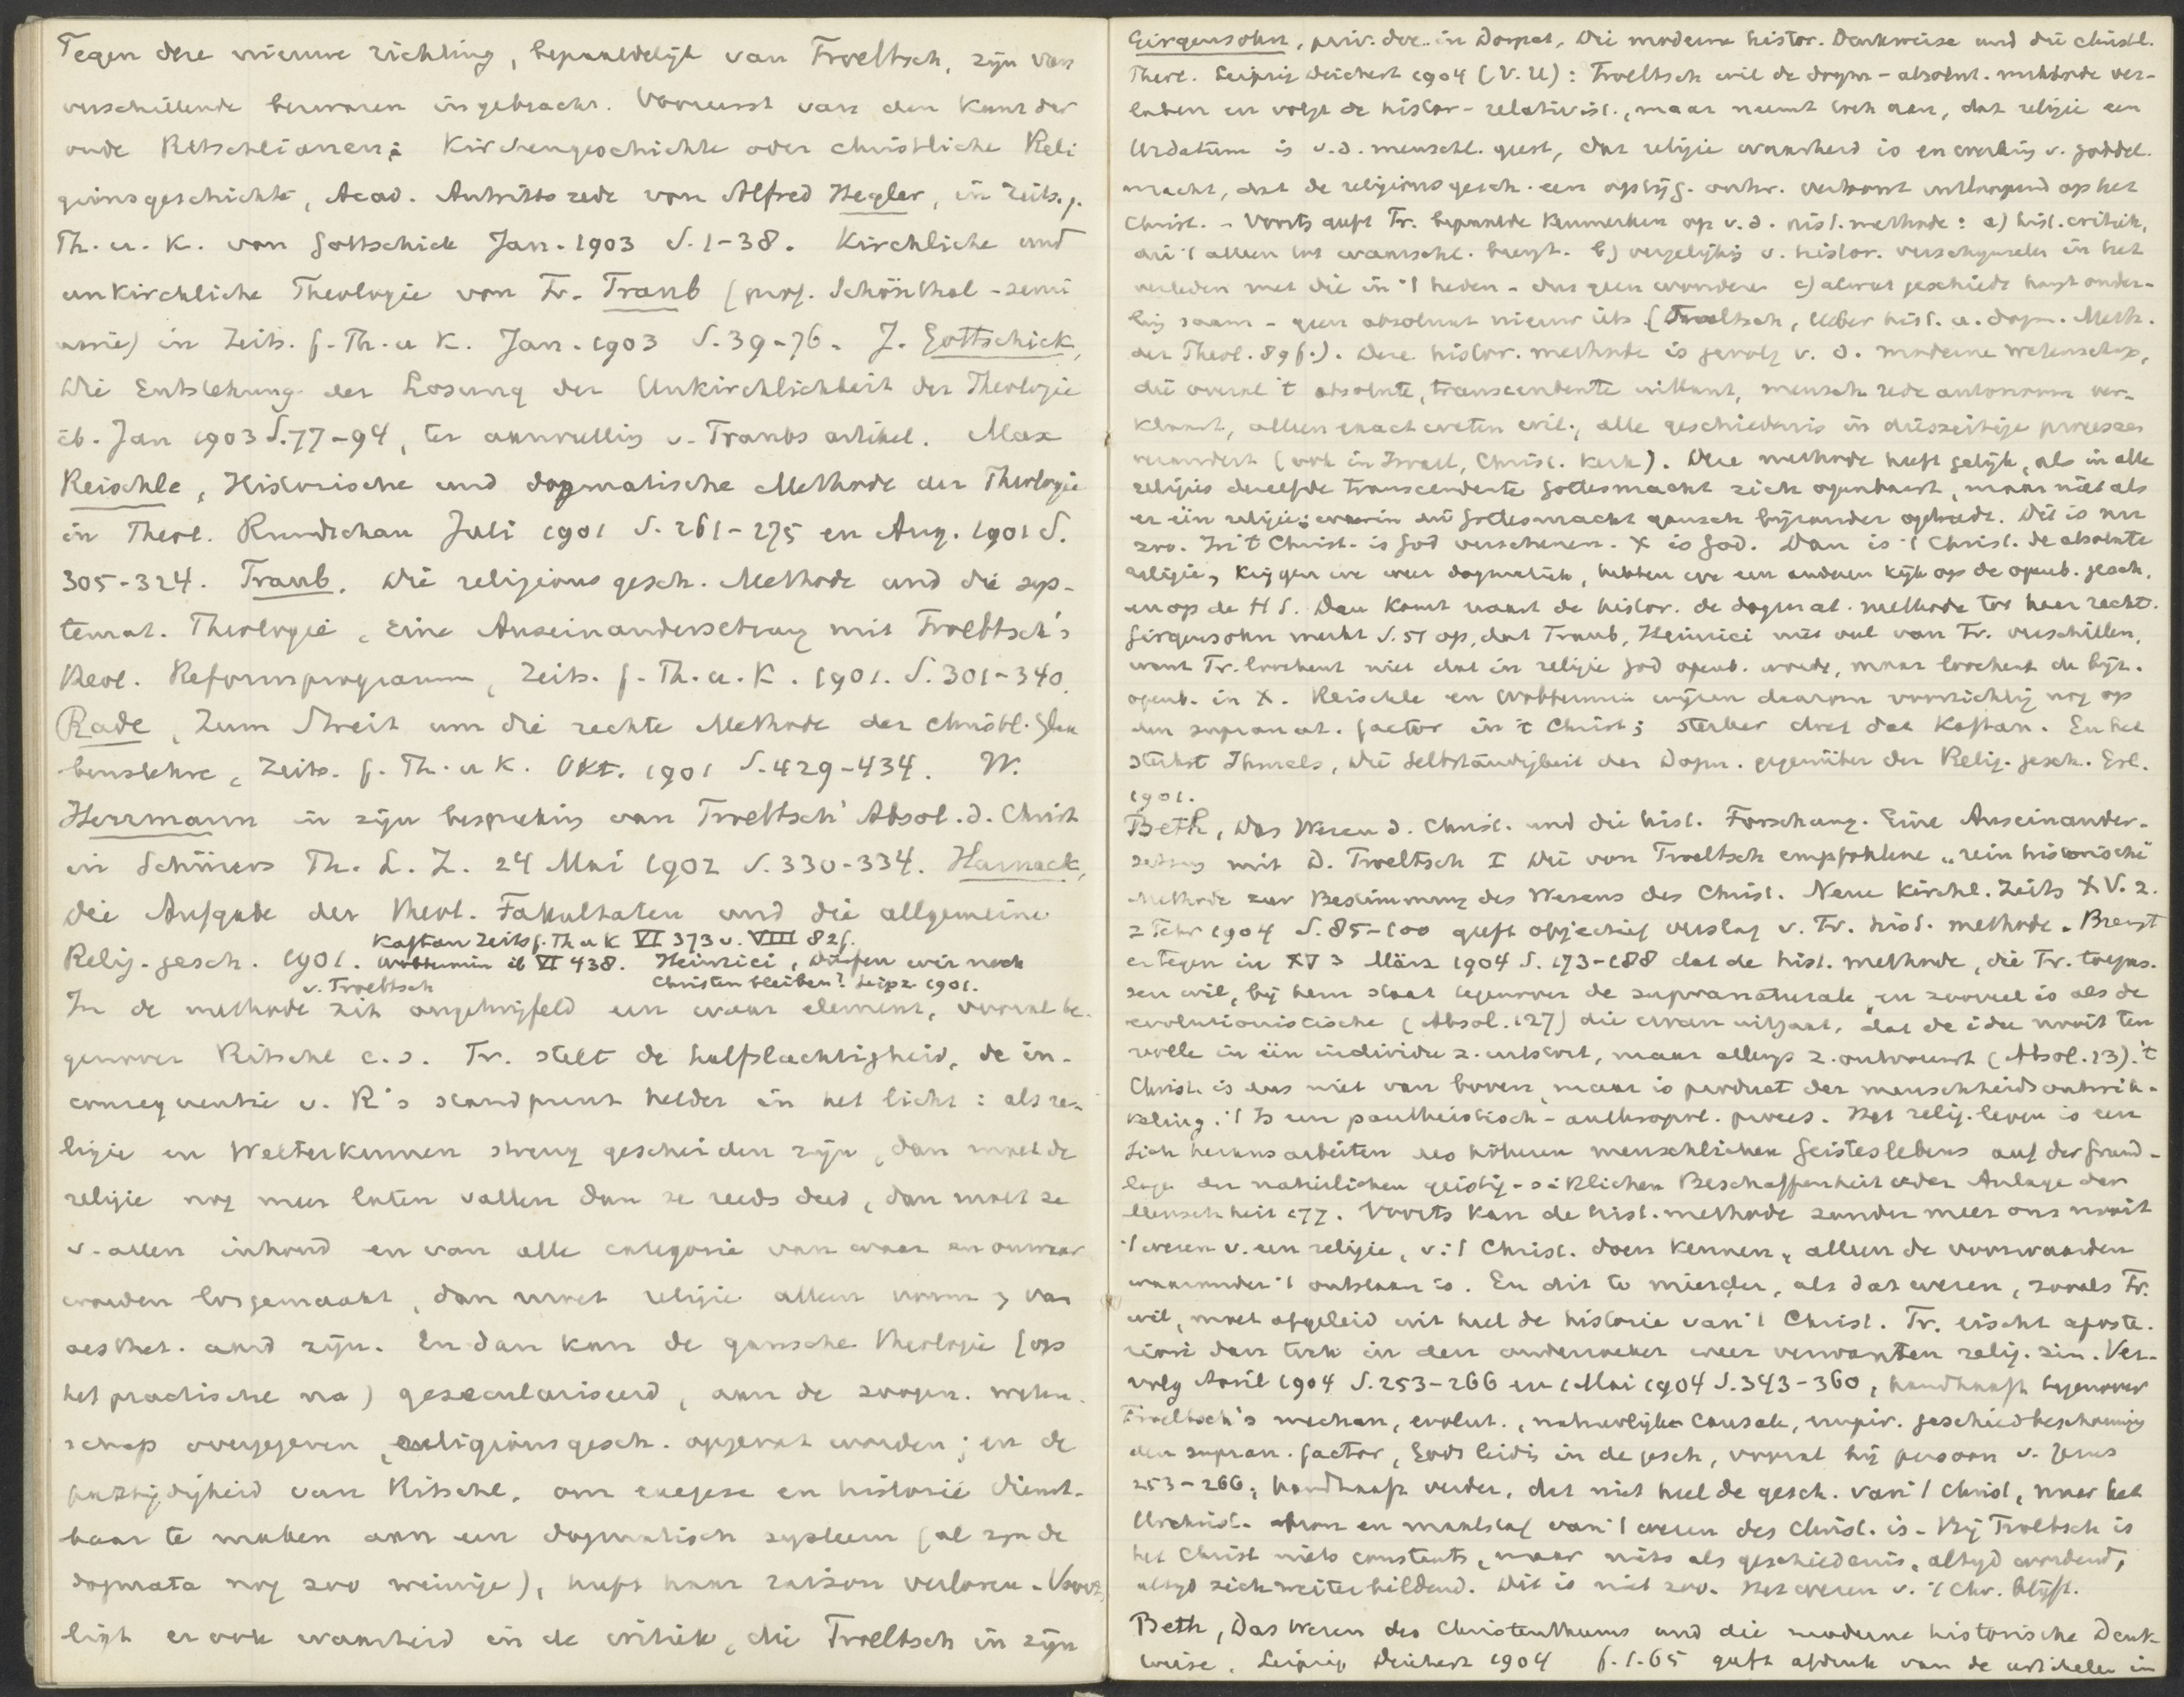 Tegen deze nieuwe richting, bepaaldelijk van Troeltsch, zijn van
verschillende bezwaren ingebracht. Vooreerst van den kant der
oude Ritschlianen: Kirchengeschichte oder christliche Reli
gionsgeschichte, Acad. Antrittsrede von Alfred Hegler, in Zeits. f.
Th. u. K. von Gottschick Jan. 1903 S. 1-38. Kirchliche und
unkirchliche Theologie von Fr. Traub (prof. Schönthal - semi
narie) in Zeits. f. Th. u K. Jan. 1903 S. 39-76. J. Gottschick,
Die Entstehung der Losung der Unkirchlichkeit der Theologie
ib. Jan 1903 S. 77-94, ter aanvulling v. Traubs artikel. Max
Reischle, Historische und dogmatische Methode der Theologie
in Theol. Rundschau Juli 1901 S. 261-275 en Aug. 1901 S.
305-324. Traub. Die religionsgesch. Methode und die sys-
temat. Theologie, Eine Auseinandersetzung mit Troeltsch's
theol. Reformprogramm, Zeits. f. Th. u. K. 1901. S. 301-340.
Rade, Zum Streit um die rechte Methode der christl. Glau
benslehre, Zeits. f. Th. u K. Okt. 1901 S. 429-434. W.
Herrmann in zijn bespreking van Troeltsch' Absol. d. Christ
in Schürers Th. L. Z. 24 Mai 1902 S. 330-334. Harnack,
Die Aufgabe der theol. Fakultäten und die allgemeine
Relig. gesch. 1901. Kaftan Zeits f. Th u K VI 373 v. VIII 82f.
Wobbermin ib VI 438. Heinrici, Dürfen wir noch
v. Troeltsch Christen bleiben? Leipz 1901.
In de methode zit ongetwijfeld een waar element, vooral te-
genover Ritschl c.s. Tr. stelt de halfslachtigheid, de in-
consequentie v. R's standpunt helder in het licht: als re-
ligie en Welterkennen streng gescheiden zijn, dan moet de
religie nog meer laten vallen dan ze reeds deed, dan moet ze
v. allen inhoud en van alle categorie van waar en onwaar
worden losgemaakt, dan moet religie alleen vorm, van
aesthet. aard zijn. En dan kan de gansche theologie (op
het practische na) gesaeculariseerd, aan de zoogen. weten-
schap overgegeven, religionsgesch. opgevat worden; en de
partijdigheid van Ritschl, om exegese en historie dienst-
baar te maken aan een dogmatisch systeem (al zijn de
dogmata nog zoo weinige), heeft haar raison verloren. Voorts
ligt er ook waarheid in de critiek, die Troeltsch in zijn
Girgensohn, priv. doc. in Dorpat, Die moderne histor. Denkweise und die christl.
Theol. Leipzig Deichert 1904 (V. U): Troeltsch wil de dogm - absolut. methode ver-
laten en volgt de histor - relativist., maar neemt toch aan, dat religie een
Urdatum is v. d. menschl. geest, dat religie waarheid is en werking v. goddel.
macht, dat de religionsgesch. een opstijg. ontw. vertoont uitloopend op het
Christ. - Voorts geeft Tr. bepaalde kenmerken op v. d. hist. methode: a) hist. critiek,
die 't alleen tot waarschl. brengt. b) vergelijking v. histor. verschijnselen in het
verleden met die in 't heden - dus geen wonderen c) alwat geschiedt hangt onder-
ling saam - geen absoluut nieuw iets (Troeltsch, Ueber hist. u. dogm. Meth.
der Theol. 89 f.). Deze histor. methode is gevolg v. d. moderne wetenschap,
die overal 't absolute, transcendente uitbant, mensch. rede autonoom ver-
klaart, alleen exact weten wil, alle geschiedenis in diesseitige processen
verandert (ook in Israel, Christ. kerk). Deze methode heeft gelijk, als in alle
religies dezelfde transcendente Gottesmacht zich openbaart, maar niet als
er één religie is waarin die Gottesmacht gansch bijzonder optreedt. Dit is nu
zoo. In 't Christ. is God verschenen. X is God. Dan is 't Christ. de absolute
religie, krijgen we weer dogmatiek, hebben we een anderen kijk op de openb. gesch.
en op de H S. Dan komt naast de histor. de dogmat. methode tot haar recht.
Girgensohn merkt S. 51 op, dat Traub, Heinrici niet veel van Tr. verschillen,
want Tr. loochent niet dat in religie God openb. wordt, maar loochent de bijz.
openb. in X. Reischle en Wobbermin wijzen daarom voorzichtig nog op
den supranat. factor in 't Christ; sterker doet dat Kaftan. En het
sterkst Ihmels, Die Selbständigkeit der Dogm. gegenüber der Relig. gesch. Erl.
1901.
Beth, Das Wesen d. Christ. und die hist. Forschung. Eine Auseinander-
setzung mit D. Troeltsch I Die von Troeltsch empfohlene „rein historische"
Methode zur Bestimmung des Wesens des Christ. Neue Kirchl. Zeits XV. 2.
2 Febr 1904 S. 85-100 geeft objectief verslag v. Tr. hist. methode. Brengt
er tegen in XV 3 März 1904 S. 173-188 dat de hist. methode, die Tr. toepas-
sen wil, bij hem staat tegenover de supranaturale en zooveel is als de
evolutionistische (Absol. 127) die ervan uitgaat, dat de idee nooit ten
volle in één individu z. uitstort, maar allengs z. ontvouwt (Absol. 13). 't
Christ. is dus niet van boven, maar is product der menschheidsontwik-
keling. 't Is een pantheistisch - anthropol. proces. Het relig. leven is een
Sich herausarbeiten des höheren menschlichen Geisteslebens auf der Grund-
lage der natürlichen geistig - sittlichen Beschaffenheit oder Anlage der
Menschheit 177. Voorts kan de hist. methode zonder meer ons nooit
't wezen v. een religie, v. 't Christ. doen kennen, alleen de voorwaarden
waaronder 't ontstaan is. En dit te minder, als dat wezen, zooals Tr.
wil, moet afgeleid uit heel de historie van 't Christ. Tr. eischt aposte-
riori dan toch in den onderzoeker weer verwanten relig. zin. Ver-
volg April 1904 S. 253-266 en Mai 1904 S. 343-360, handhaaft tegenover
Troeltsch's mechan, evolut., natuurlijke causale, empir. geschiedbeschouwing
den supran. factor, Gods leidg in de gesch, vooral bij persoon v. Jezus
253-266; handhaaft verder, dat niet heel de gesch. van 't Christ, maar het
Urchrist. bron en maatstaf van 't wezen des Christ. is. Bij Troeltsch is
het Christ niets constants, maar niets als geschiedenis, altijd wordend,
altijd zich weiterbildend. Dit is niet zoo. Het wezen v. 't Chr. blijft.
Beth, Das Wesen des Christenthums und die moderne historische Denk-
weise. Leipzig Deichert 1904 geeft afdruk van de artikelen in